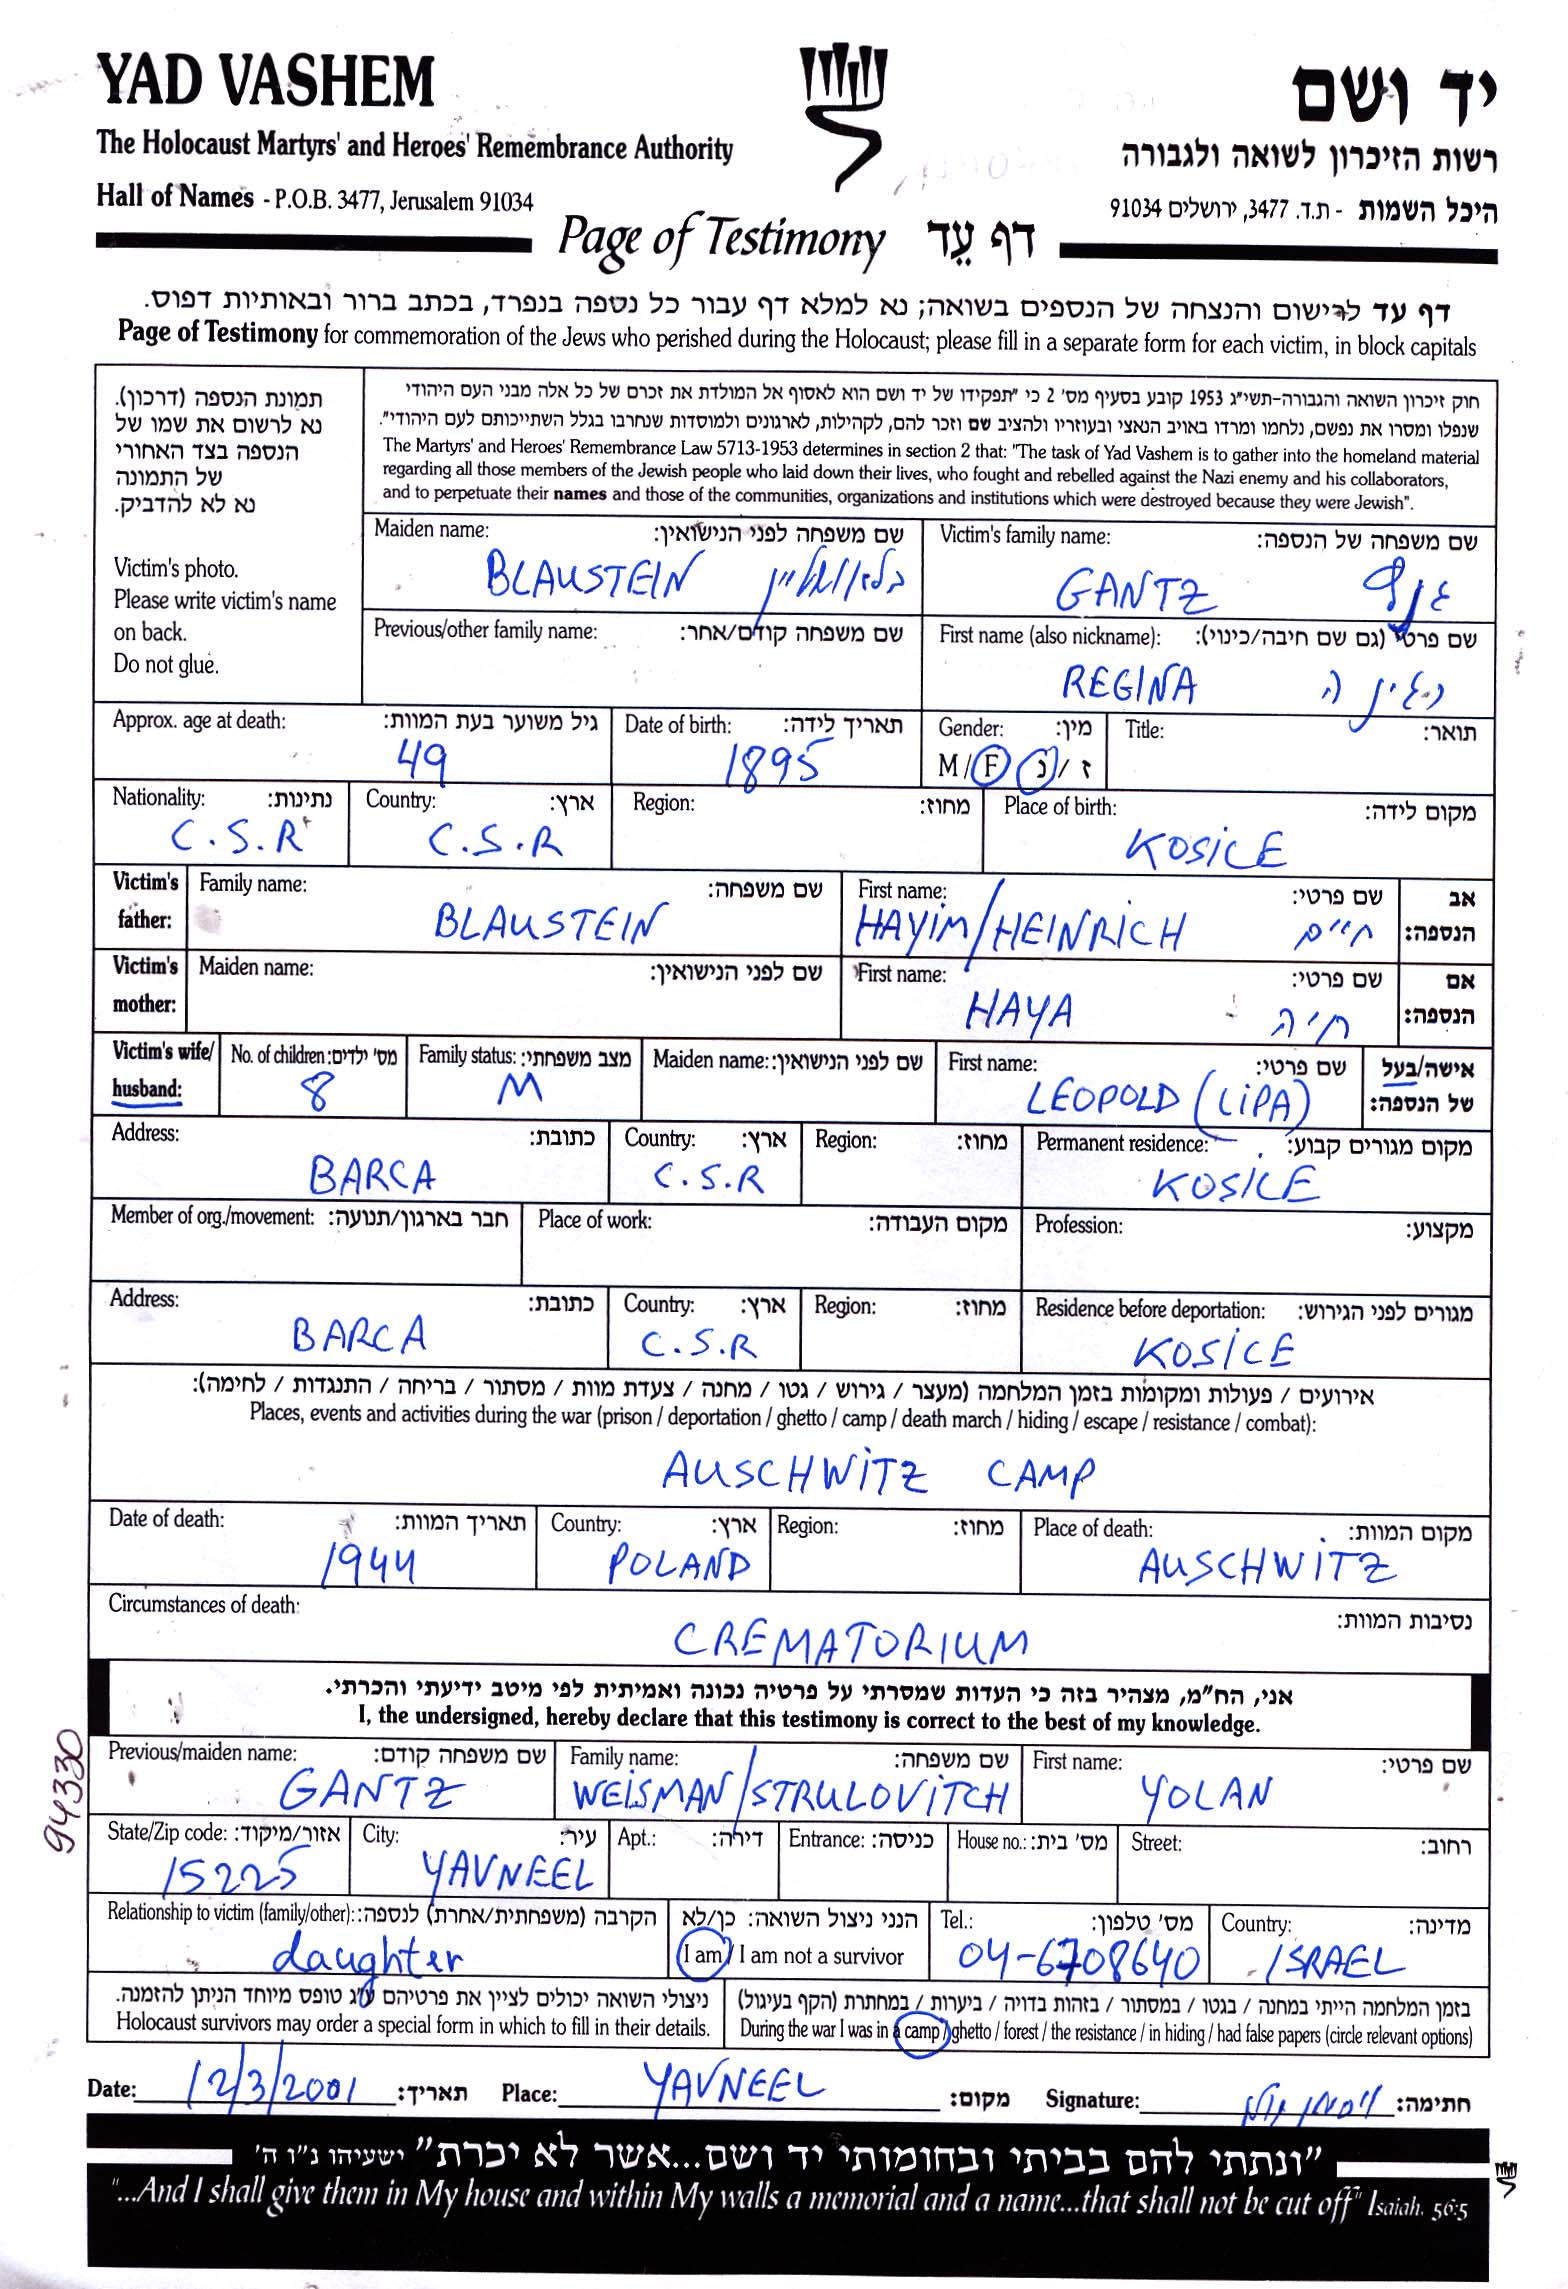 YAD VASHEM
יד ושם
The Holocaust Martyrs' and Heroes' Remembrance Authority
רשות הזיכרון לשואה ולגבורה
Hall of Names - P.O.B. 3477, Jerusalem 91034
היכל השמות - ת.ד. 3477, ירושלים 91034
Page of Testimony דף עֵד
דף עד לרישום והנצחה של הנספים בשואה; נא למלא דף עבור כל נספה בנפרד, בכתב ברור ובאותיות דפוס.
Page of Testimony for commemoration of the Jews who perished during the Holocaust; please fill in a separate form for each victim, in block capitals
תמונת הנספה (דרכון).
נא לרשום את שמו של
הנספה בצד האחורי
של התמונה
נא לא להדביק.
Victim's photo.
Please write victim's name
on back.
Do not glue.
חוק זיכרון השואה והגבורה-תשי"ג 1953 קובע בסעיף מס' 2 כי "תפקידו של יד ושם הוא לאסוף אל המולדת את זכרם של כל אלה מבני העם היהודי
שנפלו ומסרו את נפשם, נלחמו ומרדו באויב הנאצי ובעוזריו ולהציב שם וזכר להם, לקהילות, לארגונים ולמוסדות שנחרבו בגלל השתייכותם לעם היהודי".
The Martyrs' and Heroes' Remembrance Law 5713-1953 determines in section 2 that: "The task of Yad Vashem is to gather into the homeland material
regarding all those members of the Jewish people who laid down their lives, who fought and rebelled against the Nazi enemy and his collaborators,
and to perpetuate their names and those of the communities, organizations and institutions which were destroyed because they were Jewish".
Maiden name: שם משפחה לפני הנישואין:
BLAUSTEIN בלאושטיין
Victim's family name: שם משפחה של הנספה:
GANTZ גנץ
Previous/other family name: שם משפחה קודם/אחר:
First name (also nickname): שם פרטי (גם שם חיבה/כינוי):
REGINA רגינה
Approx. age at death: גיל משוער בעת המוות:
49
Date of birth: תאריך לידה:
1895
Gender: מין:
M / F נ / ז
Title: תואר:
Nationality: נתינות:
C.S.R
Country: ארץ:
C.S.R
Region: מחוז:
Place of birth: מקום לידה:
KOSICE
Victim's father:
Family name: שם משפחה:
BLAUSTEIN
First name: שם פרטי:
HAYIM/HEINRICH חיים
אב הנספה:
Victim's mother:
Maiden name: שם לפני הנישואין:
First name: שם פרטי:
HAYA חיה
אם הנספה:
Victim's wife/ husband:
No. of children: מס' ילדים:
8
Family status: מצב משפחתי:
M
Maiden name: שם לפני הנישואין:
First name: שם פרטי:
LEOPOLD (LIPA)
אישה/בעל של הנספה:
Address: כתובת:
BARCA
Country: ארץ:
C.S.R
Region: מחוז:
Permanent residence: מקום מגורים קבוע:
KOSICE
Member of org./movement: חבר בארגון/תנועה:
Place of work: מקום העבודה:
Profession: מקצוע:
Address: כתובת:
BARCA
Country: ארץ:
C.S.R
Region: מחוז:
Residence before deportation: מגורים לפני הגירוש:
KOSICE
אירועים / פעולות ומקומות בזמן המלחמה (מעצר / גירוש / גטו / מחנה / צעדת מוות / מסתור / בריחה / התנגדות / לחימה):
Places, events and activities during the war (prison / deportation / ghetto / camp / death march / hiding / escape / resistance / combat):
AUSCHWITZ CAMP
Date of death: תאריך המוות:
1944
Country: ארץ:
POLAND
Region: מחוז:
Place of death: מקום המוות:
AUSCHWITZ
Circumstances of death: נסיבות המוות:
CREMATORIUM
אני, הח"מ, מצהיר בזה כי העדות שמסרתי על פרטיה נכונה ואמיתית לפי מיטב ידיעתי והכרתי.
I, the undersigned, hereby declare that this testimony is correct to the best of my knowledge.
94330
Previous/maiden name: שם משפחה קודם:
GANTZ
Family name: שם משפחה:
WEISMAN/STRULOVITCH
First name: שם פרטי:
YOLAN
State/Zip code: אזור/מיקוד:
15225
City: עיר:
YAVNEEL
Apt.: דירה:
Entrance: כניסה:
House no.: מס' בית:
Street: רחוב:
Relationship to victim (family/other): הקרבה (משפחתית/אחרת) לנספה:
daughter
הנני ניצול השואה: כן/לא
I am / I am not a survivor
Tel.: מס' טלפון:
04-6708640
Country: מדינה:
ISRAEL
ניצולי השואה יכולים לציין את פרטיהם ע"ג טופס מיוחד הניתן להזמנה.
Holocaust survivors may order a special form in which to fill in their details.
בזמן המלחמה הייתי במחנה / בגטו / במסתור / בזהות בדויה / ביערות / במחתרת (הקף בעיגול)
During the war I was in a camp / ghetto / forest / the resistance / in hiding / had false papers (circle relevant options)
Date: 12/3/2001 תאריך: Place: YAVNEEL מקום: Signature: ויסמן יולן חתימה:
"ונתתי להם בביתי ובחומותי יד ושם...אשר לא יכרת" ישעיהו נ"ו ה'
"...And I shall give them in My house and within My walls a memorial and a name...that shall not be cut off" Isaiah. 56:5